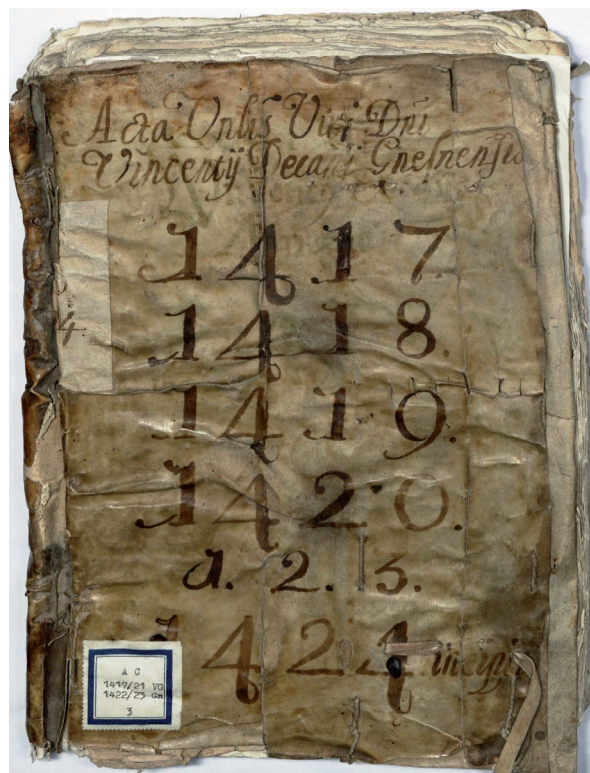 Acta Vnlis Viri Dni
Vincentÿ Decani Gnesnensis
1417.
1418.
1419.
1420.
1. 2. 3.
1424 incipit
4.
A C
1417/21 VG
1422/23 Gn
3